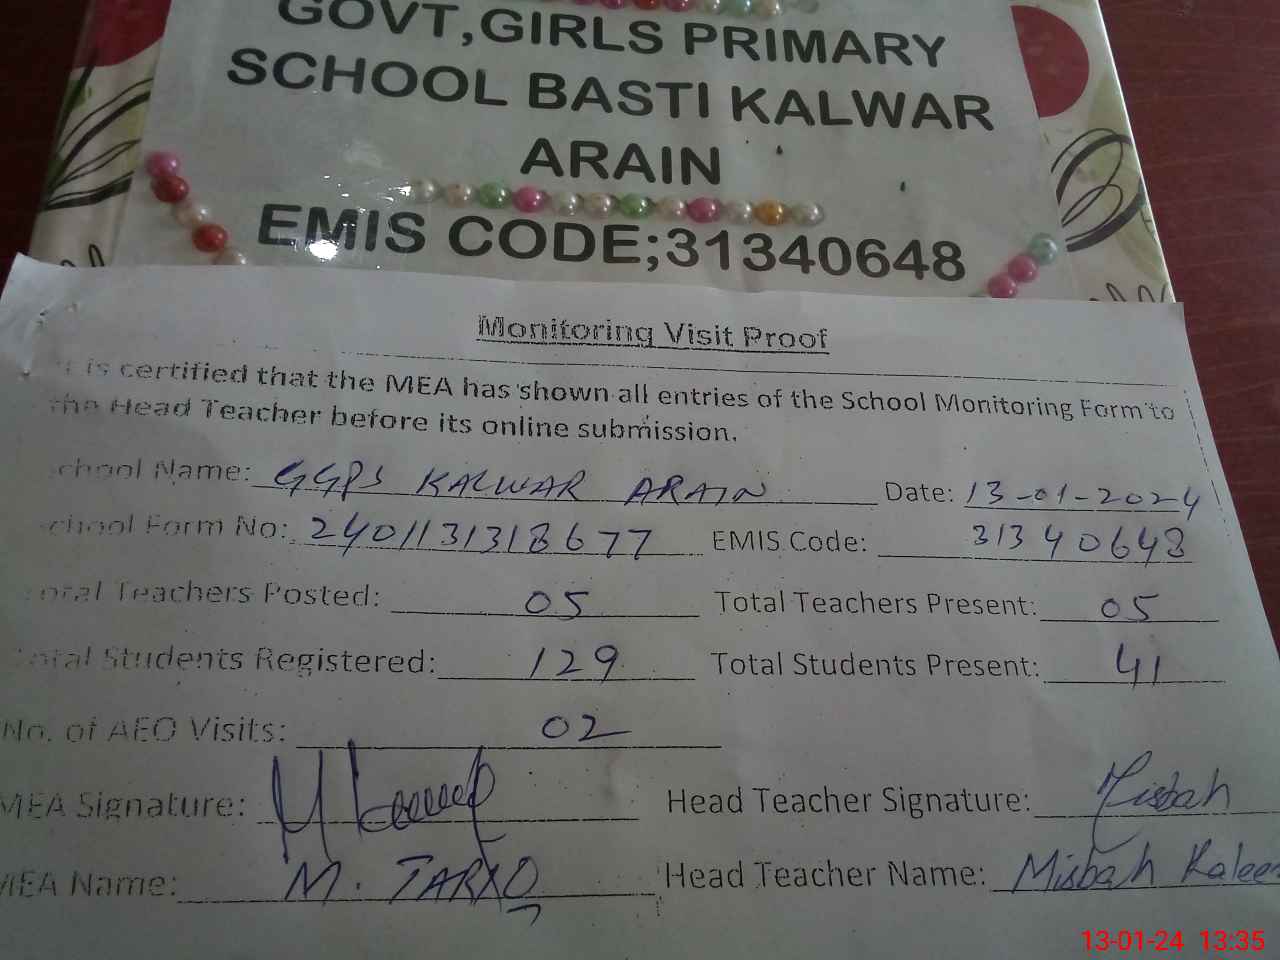 GOVT,GIRLS PRIMARY
SCHOOL BASTI KALWAR
ARAIN
EMIS CODE;31340648
Monitoring Visit Proof
It is certified that the MEA has shown all entries of the School Monitoring Form to
the Head Teacher before its online submission.
chool Name: GGPS KALWAR ARAIN Date: 13-01-2024
chool Form No: 2401131318677 EMIS Code: 31340648
otal Teachers Posted: 05 Total Teachers Present: 05
Total Students Registered: 129 Total Students Present: 41
No. of AEO Visits: 02
MEA Signature: Head Teacher Signature: Misbah
MEA Name: M. TARIQ Head Teacher Name: Misbah Kalee
13-01-24 13:35